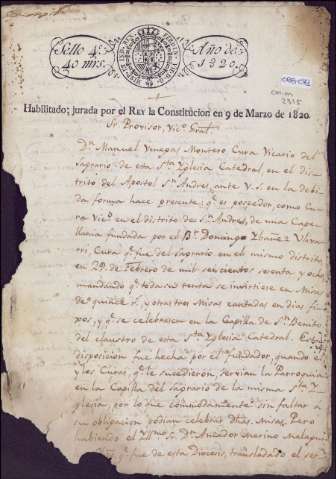 Sello 4º
40 mrs.
Año de
1820.
Habilitado; jurada por el REY la Constitucion en 9 de Marzo de 1820.
Sr Provisor, Vicº Gral
Dn Manuel Venegas Montero Cura Vicario del
Sagrario de esta Sta Yglesia Catedral, en el dis
trito del Apostol Sn Andres, ante V.S. en la debi
da forma hace presente, qe es poseedor, como Cu
ra Vicº en el distrito de Sn Andres, de una Cape
llania fundada por el Br Domingo Ibañez
Cura qe fue del Sagrario en el mismo distrito
en 29 de Febrero de mil seiscientos setenta y ocho
mandando qe toda su renta se invirtiese en Misas
de quince rs y otras tres Misas cantadas en dias
y qe se celebrasen en la Capilla de Sn Benito
del claustro de esta Sta Yglesia Catedral. Esta
disposicion fue hecha por el fundador, quando el
y los Curas, qe le sucedieron, servian la Parroquia
en la Capilla del Sagrario de la misma Sta Y
glesia, por lo que comodamente sin faltar a
su obligacion podian celebrar dhas Misas. Pero
habiendo el Yllmo Sr Dn Amador Merino Malaguilla
qe fue de esta Diocesis, transladado el ser